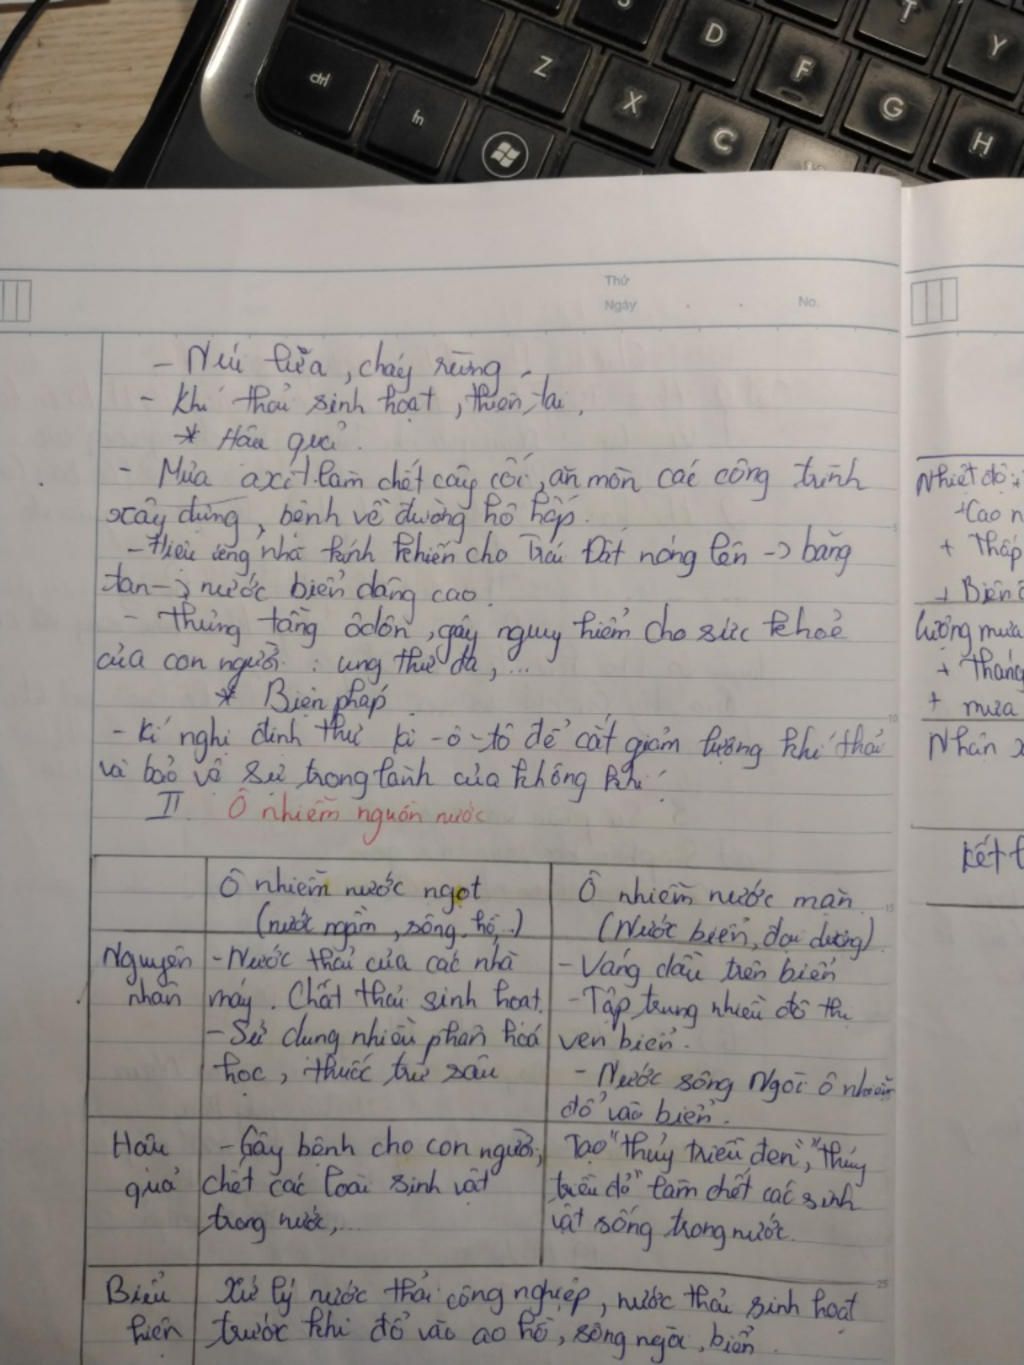 D
T
Y
ctrl
Z
F
fn
X
G
C
H
Thứ
Ngày
No.
- Núi lửa, cháy rừng,
- Khí thải sinh hoạt, thiên tai,
* Hậu quả.
- Mưa axit làm chết cây cối, ăn mòn các công trình
xây dựng, bệnh về đường hô hấp.
- Hiệu ứng nhà kính khiến cho Trái Đất nóng lên -> băng
tan -> nước biển dâng cao.
- Thủng tầng ôdôn, gây nguy hiểm cho sức khoẻ
của con người: ung thư da, ...
* Biện pháp
- Kí nghị định thư ki-ô-tô để cắt giảm lượng khí thải
và bảo vệ sự trong lành của không khí.
II. Ô nhiễm nguồn nước
Ô nhiễm nước ngọt
(nước ngầm, sông, hồ,..)
Ô nhiễm nước mặn
(Nước biển, đại dương)
Nguyên
nhân
- Nước thải của các nhà
máy. Chất thải sinh hoạt.
- Sử dụng nhiều phân hoá
học, thuốc trừ sâu
- Váng dầu trên biển
- Tập trung nhiều đô thị
ven biển.
- Nước sông Ngòi ô nhiễm
đổ vào biển.
Hậu
quả
- Gây bệnh cho con người,
chết các loài sinh vật
trong nước,...
Tạo "thuỷ triều đen", "thuỷ
triều đỏ" làm chết các sinh
vật sống trong nước.
Biểu
hiện
Xử lý nước thải công nghiệp, nước thải sinh hoạt
trước khi đổ vào ao hồ, sông ngòi, biển.
5
10
15
25
Nhiệt độ:
+ Cao n
+ Thấp
+ Biên
Lượng mưa
+ Tháng
+ mưa
Nhận x
Kết